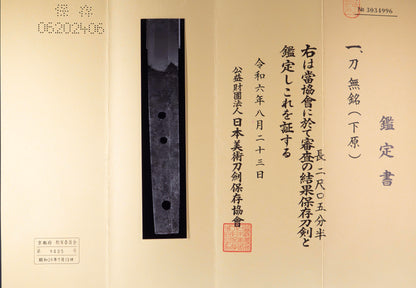 № 3034996
鑑定書
一、刀 無銘(下原)
長 二尺〇五分半
右は當協會に於て審査の結果保存刀剣と
鑑定しこれを証する
令和六年八月二十三日
公益財團法人日本美術刀劍保存協會
保存
06202406
京都府教育委員会